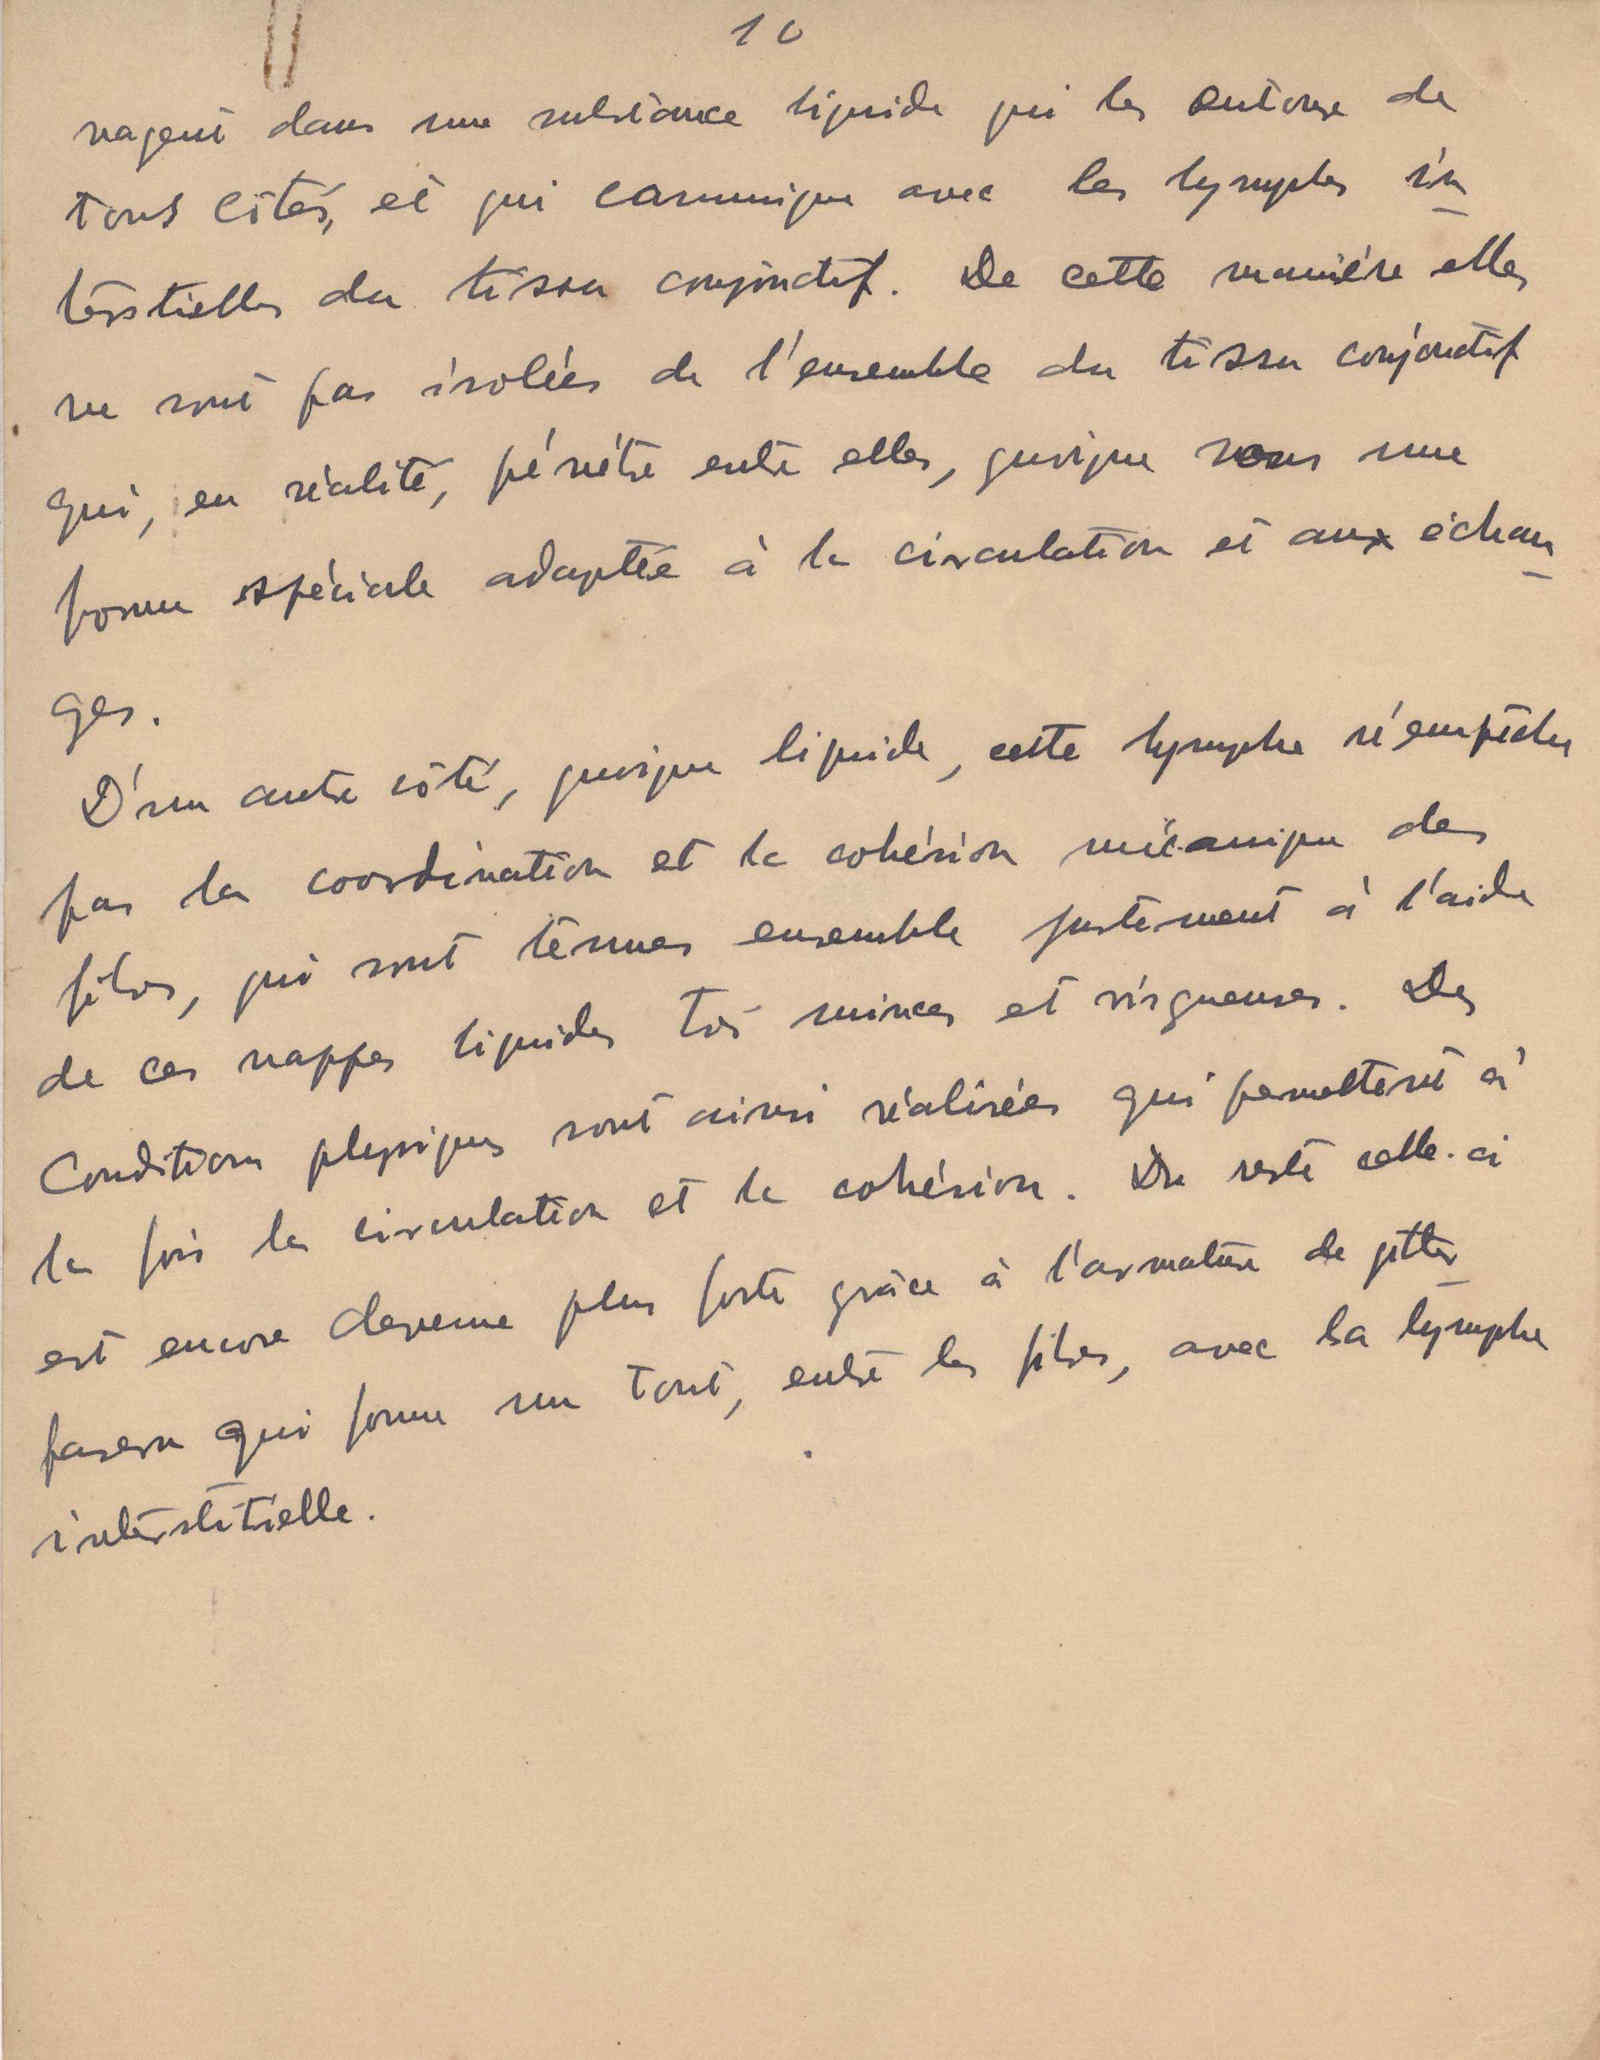 10
nagent dans une substance liquide qui les entoure de
tous cotés, et qui communique avec les lymphes in
terstielles du tissu conjonctif. De cette manière elles
ne sont pas isolées de l'ensemble du tissu conjonctif
qui, en réalité, pénétre entre elles, quoique sous une
forme spéciale adaptée à la circulation et aux échan
ges.
D'un autre côté, quoique liquide, cette lymphe n'empêche
pas la coordination et la cohésion mécanique des
fibres, qui sont tenues ensemble justement à l'aide
de ces nappes liquides très minces et visqueuses. Des
Conditions physiques sont ainsi réalisées qui permettent à
la fois la circulation et la cohésion. Du reste celle-ci
est encore devenue plus forte grâce à l'armature de
qui forme un tout, entre les fibres, avec la lymphe
interstitielle.